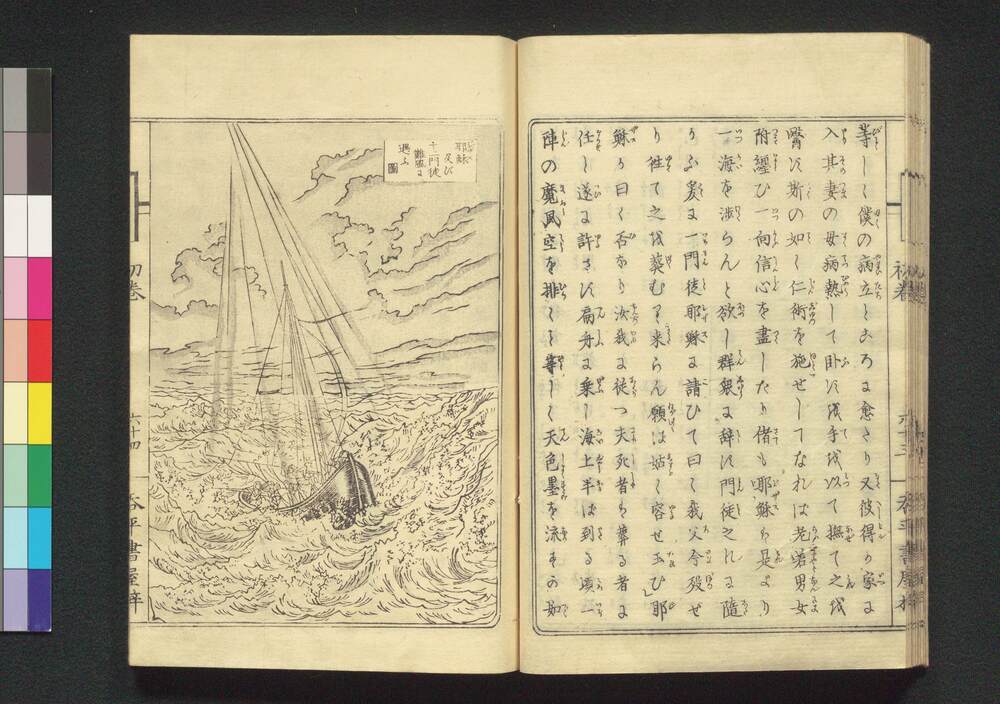 等しく僕の病立ところに愈たり又彼得の家に
入其妻の母病熱して臥に我手を以て撫て之を
醫に斯の如く仁術を施せしてなれは老若男女
附纏ひ一向信心を盡したり偖も耶穌ハ是より
一海を渉らんと欲し群衆に辞に門徒之れに隨
りふ爰に一門徒耶穌に請ひて曰く我父今歿せ
り往て之を葬むり来らん願は姑く容せ玉ひ」耶
穌か曰く否なり汝我に從つ夫死者ハ葬る者に
任し遂に許さに扁舟に乗し海上半は到る頃一
陣の魔風空を排くと等しく天色墨を流すの如
初巻
六十三
耶穌
及び
十二門徒
難風に
遇ふ
圖
初巻
六十四